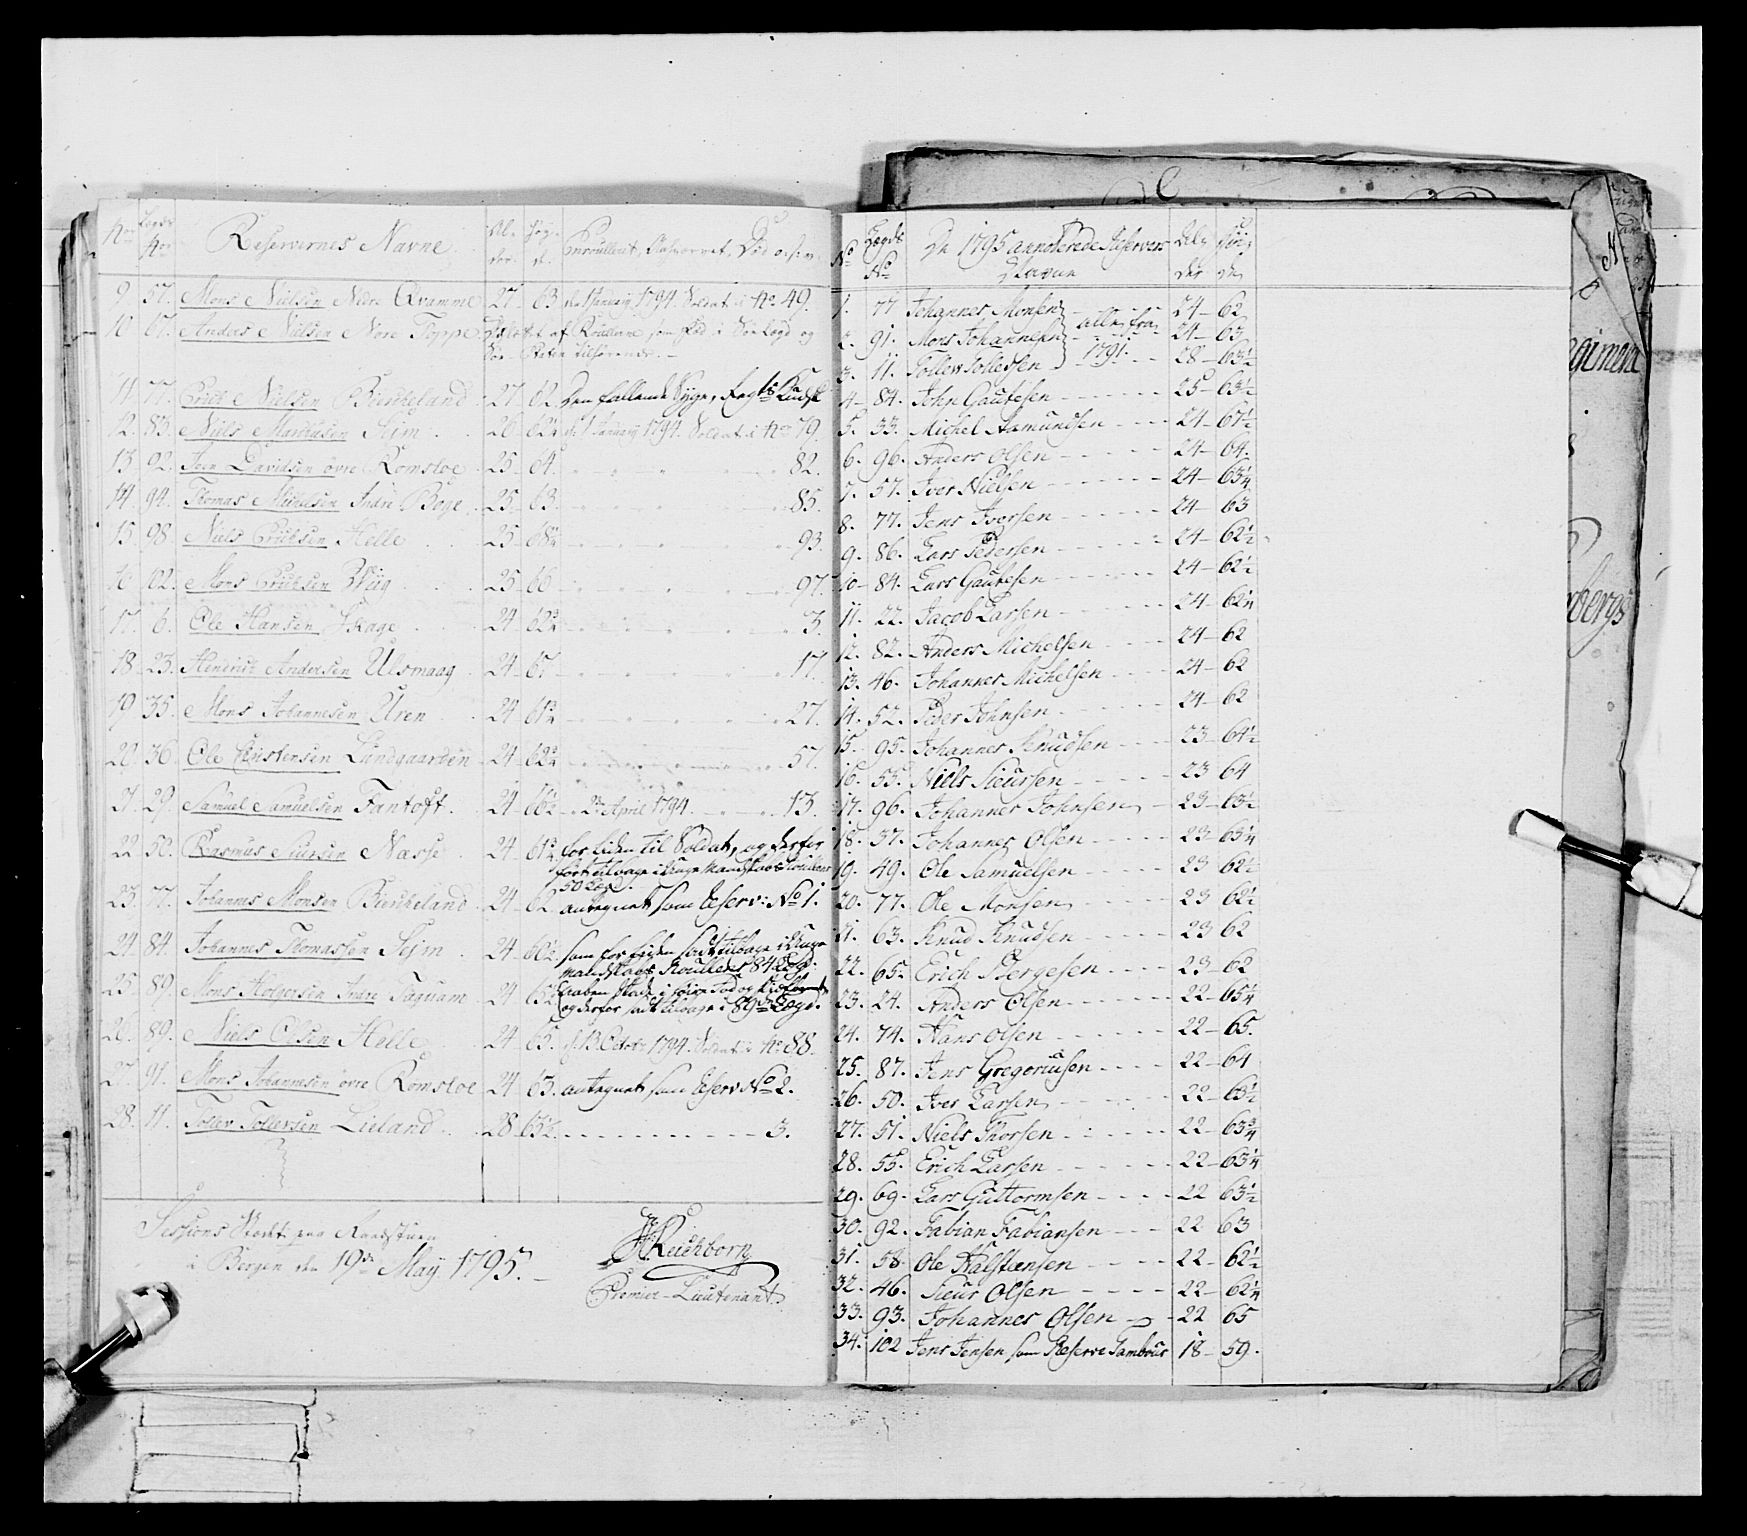 Reservernes Navne
9. 57. Mons Nielsen Nedre Qvamme 27 63 d. 1 January 1794 Soldat i No 49.
10 67. Anders Nielsen Nore Toppe
77. Nielsen Birckeland 27 62 Den fallende Syge,
12. 83. Niels Seim 26 January 1794. Soldat i No 79.
13 92. Davidsen övre Romsloe 25 64. 82.
14 94. Thomas Michelsen Indre Boge 25 63. 85.
15. 98. Niels Erichsen Helle 25 93.
16 102. Mons Erichsen Wiig 25 66 97.
17. 6. Ole Hansen Skage 24 3.
18. 23. Hendrich Andersen Ulsmaag 24 67 17.
19 35. Mons Johannesen Uren 24 27.
20. 36. Ole Christensen Lundgaarden 24 57.
21. 29. Samuel Samuelsen Fantoft. 24 April 1794. 13.
22 50. Rasmus Siursen Næsse 24 for liden til Soldat, og derfor
ført tilbage i
50 Lægd.
23. 77. Johannes Monsen Birckeland 24 62 antegnet som Reserv: No 1.
24. 84. Johannes Thomassen Sejm 24 som for liden sadt tilbage i Unge
Mandskabs Roullens 84 Lægd.
25. 89. Mons Holgersen Indre Taqvam 24
og derfor sadt tilbage i 89de Lægd.
26. 89. Niels Olsen Helle 24 65. d. 13 Octobr 1794. Soldat i No 88.
27. 91. Mons Johannesen övre Romsloe 24 63. antegnet som Reserv No 2.
28. 11. Tollev Tollevsen Lieland 28 63½ 3.
Sessions Stedet paa Raadstuen
i Bergen den 19de May 1795.
Premier-Lieutenant
No Lægds No De 1795 annoterede Reservers Navne
1. 77 Johannes Monsen 24 62
2. 91. Mons Johannesen 24 63
3. 11. Tollev Tollevsen 28 63½
alle fra 1791.
4 84. John Gautesen 25 63½
5. 33. Michel Aamundsen 24 67½
6. 96. Anders Olsen 24 64.
7. 57. Iver Nielsen 24 63¼
8. 77. Jens Iversen 24 63
9. 86. Lars Pedersen 24 62½
10 84. Lars Gautesen 24 62½
11. 22. Jacob Larsen 24 62¼
12. 82. Anders Michelsen 24 62
13. 46. Johannes Michelsen 24 62
14. 52. Peder Johnsen 24 62
15. 95. Johannes Knudsen 23 64½
16. 55. Niels Sieursen 23 64
17. 96. Johannes Johnsen 23 63½
18. 37. Johannes Olsen 23 63¼
19. 49. Ole Samuelsen 23 62½
20. 77. Ole Monsen 23 62½
21. 63. Knud Knudsen 23 62
22. 65. Erich Børgesen 23 62
23. 24. Anders Olsen 22 65¼
24. 74. Hans Olsen 22 65.
25. 87. Jens Gregoriusen 22 64
26. 50. Iver Larsen 22 63½
27. 51. Niels Thorsen 22 63¾
28. 55. Erich Larsen 22 63¼
29. 69. Lars Guttormsen 22 63½
30. 92. Fabian Fabiansen 22 63
31. 58. Ole Halstensen 22 62½
32. 46. Sieur Olsen 22 62¼
33. 93. Johannes Olsen 22 65
34. 102 Jens Jensen som Reserve Tambour 18 59.